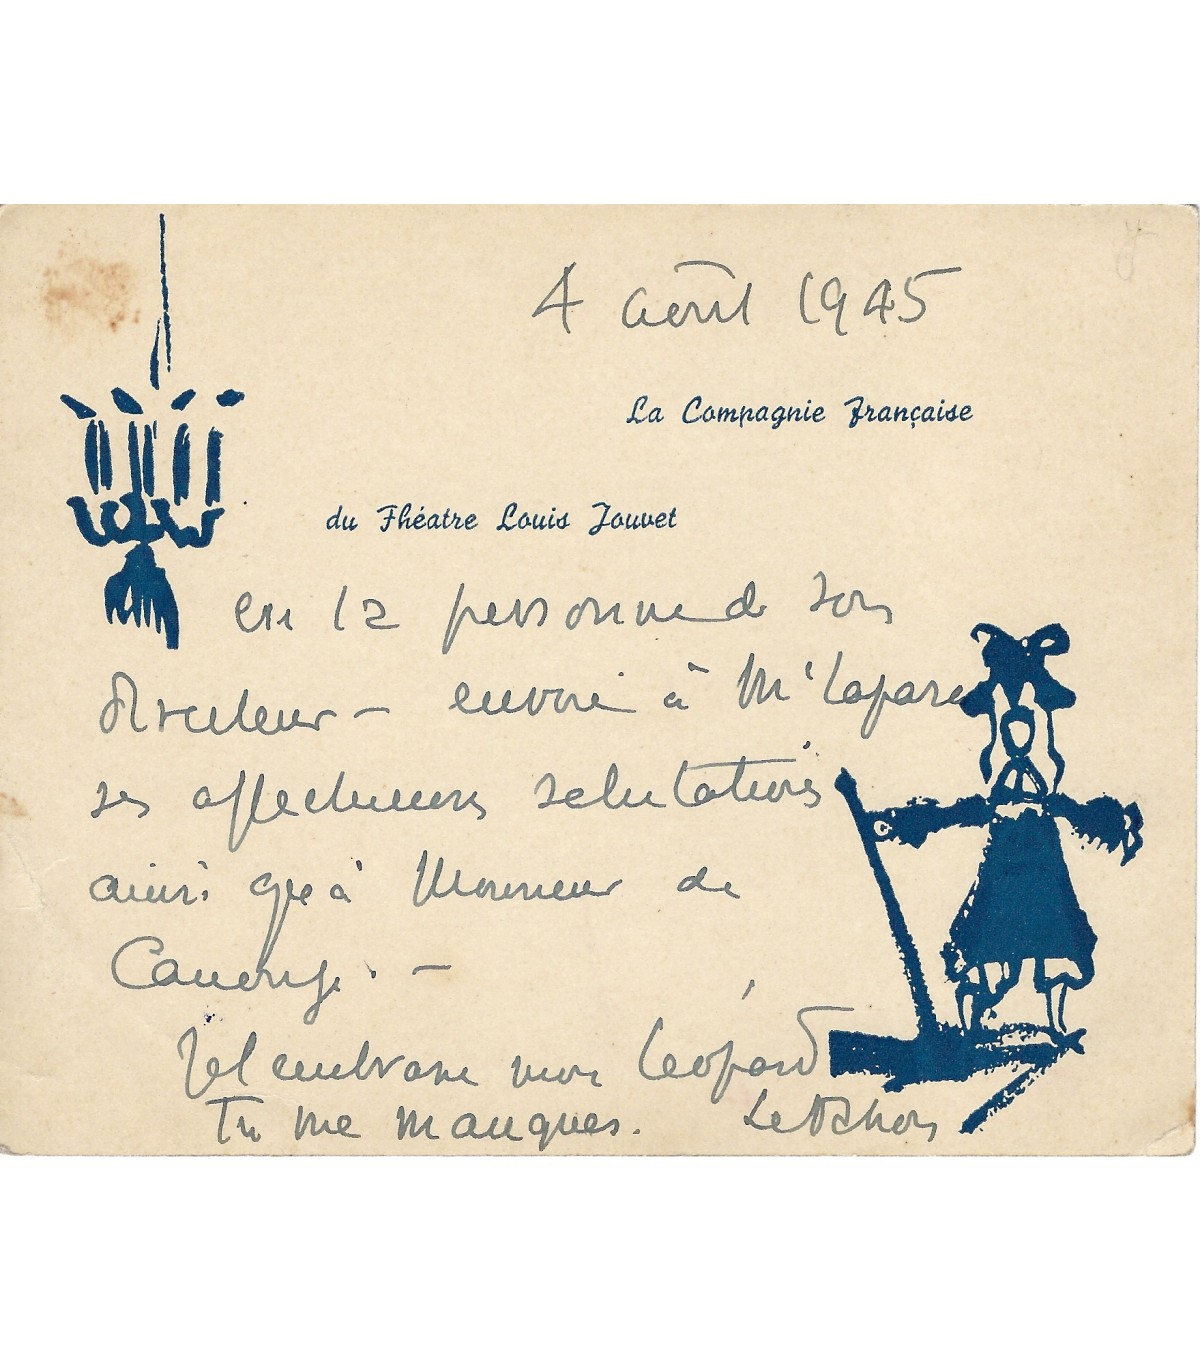 4 août 1945
La Compagnie Française
du Théatre Louis Jouvet
en la personne de son
directeur — envoie à Mr Lapara
ses affectueuses salutations
ainsi que à Monsieur de
— 
Je t'embrasse mon Léopard
Tu me manques.